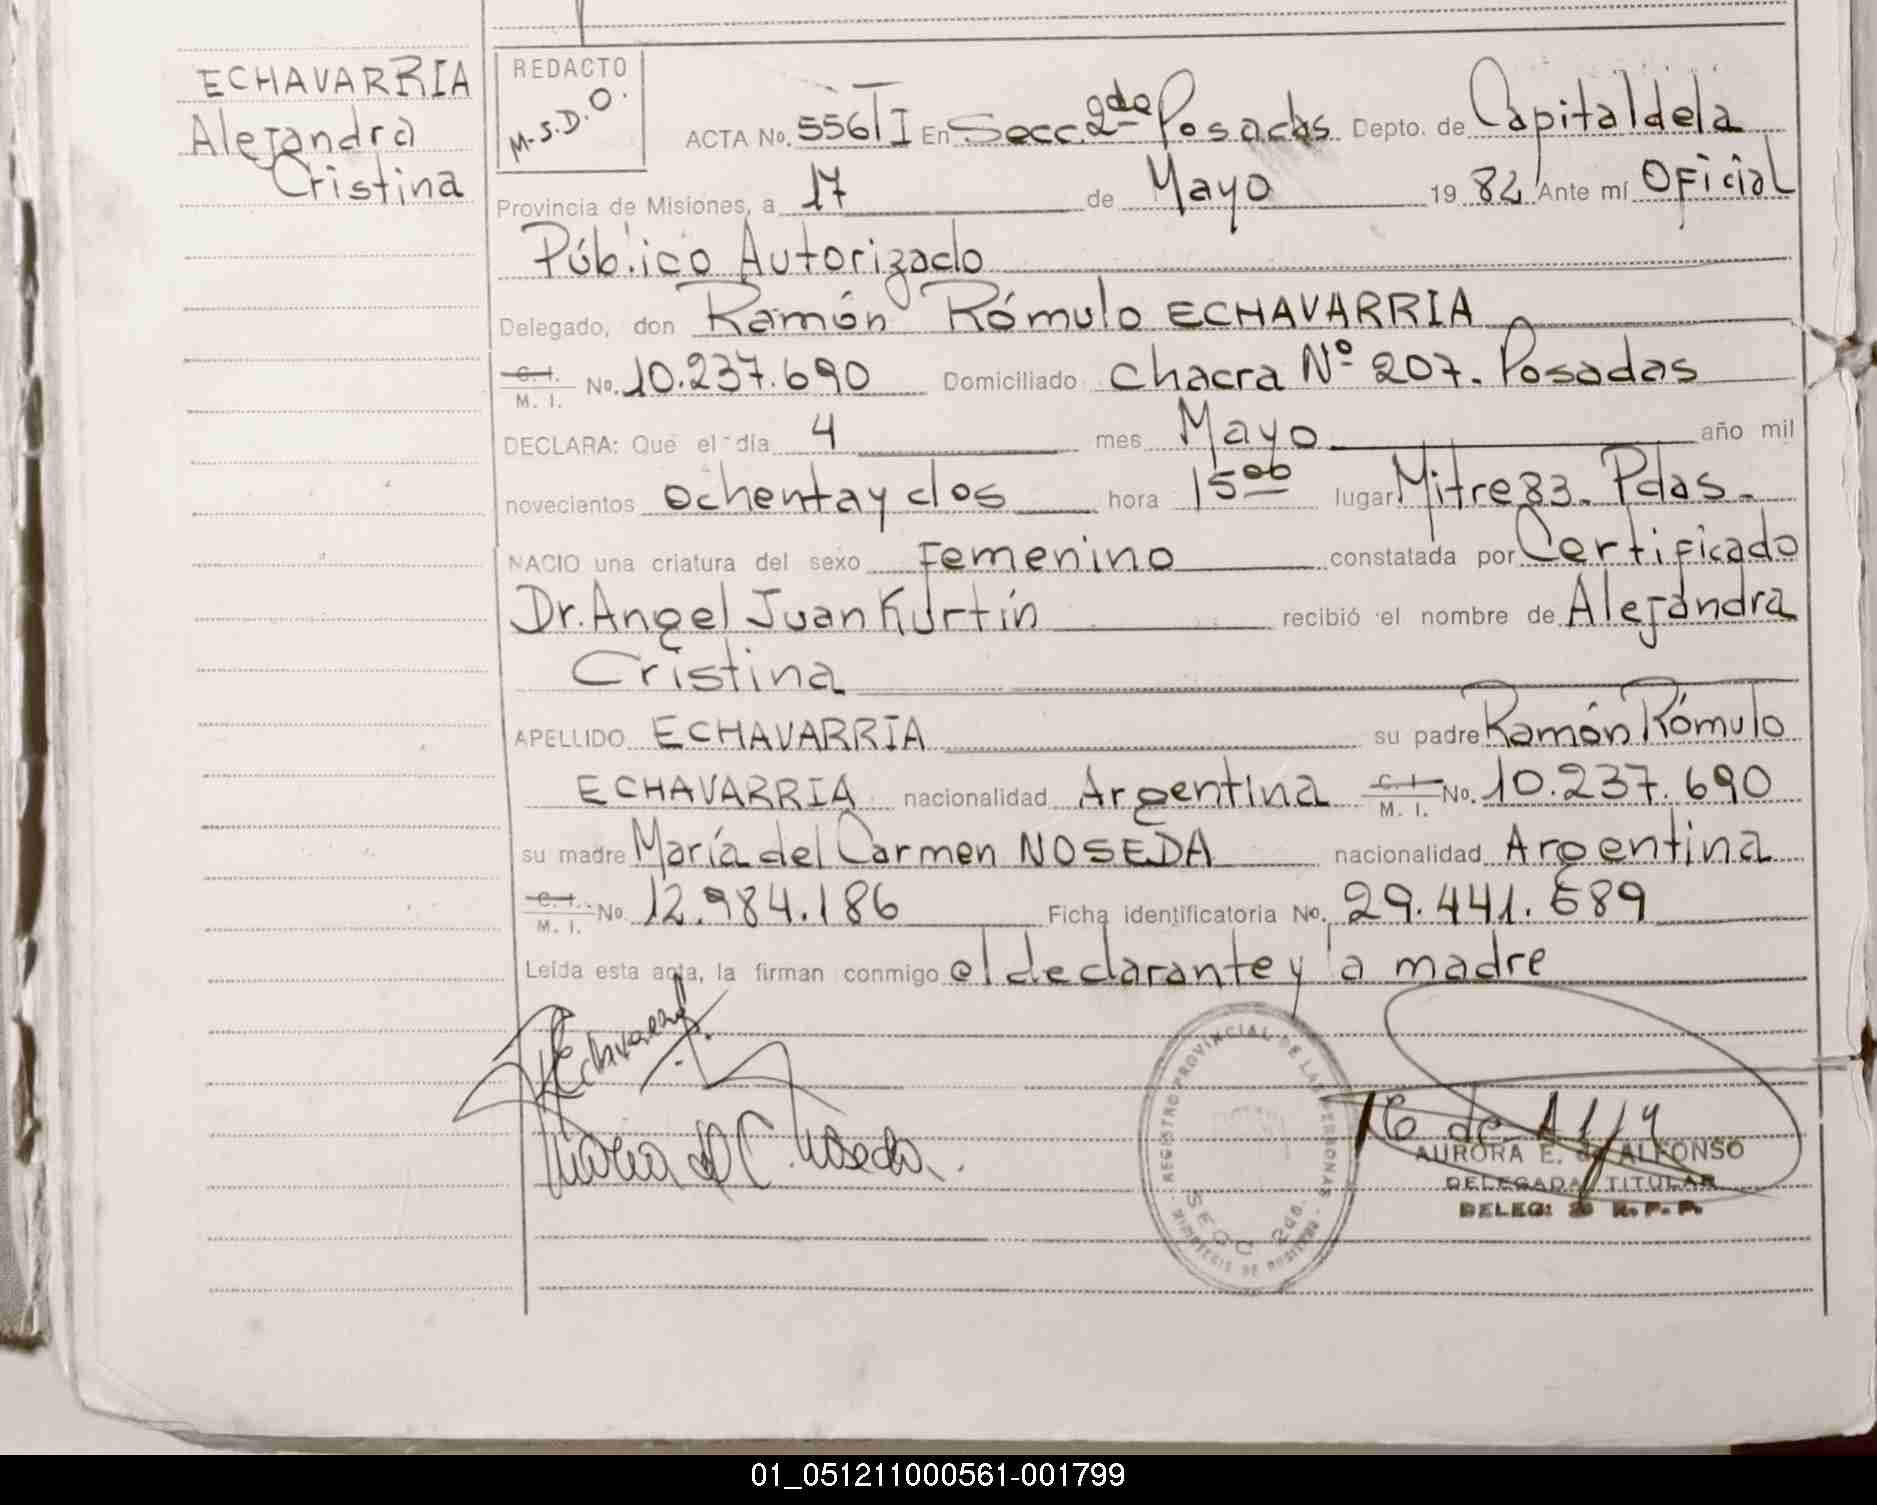 ECHAVARRIA
Alejandra
Cristina
REDACTO
M.S.D.O.
ACTA No. 556 T I En Secc. 2da Posadas Depto. de Capital de la
Provincia de Misiones, a 17 de Mayo 1982 Ante mí Oficial
Público Autorizado
Delegado, don Ramón Rómulo ECHAVARRIA
C. I. M. I. No. 10.237.690 Domiciliado Chacra Nº 207. Posadas
DECLARA: Que el día 4 mes Mayo año mil
novecientos ochenta y dos hora 15 00 lugar Mitre 83. Pdas.
NACIO una criatura del sexo Femenino constatada por Certificado
Dr. Angel Juan Kurtín recibió el nombre de Alejandra
Cristina
APELLIDO ECHAVARRIA su padre Ramón Rómulo
ECHAVARRIA nacionalidad Argentina C. I. M. I. No. 10.237.690
su madre María del Carmen NOSEDA nacionalidad Argentina
C. I. M. I. No. 12.984.186 Ficha identificatoria No. 29.441.689
Leída esta acta, la firman conmigo el declarante y la madre
Echavarria
Maria del C. Noseda.
REGISTRO PROVINCIAL DE LAS PERSONAS
SECC 2da.
AURORA E. de ALFONSO
DELEGADA TITULAR
DELEG: 2 R.P.P.
01_051211000561-001799